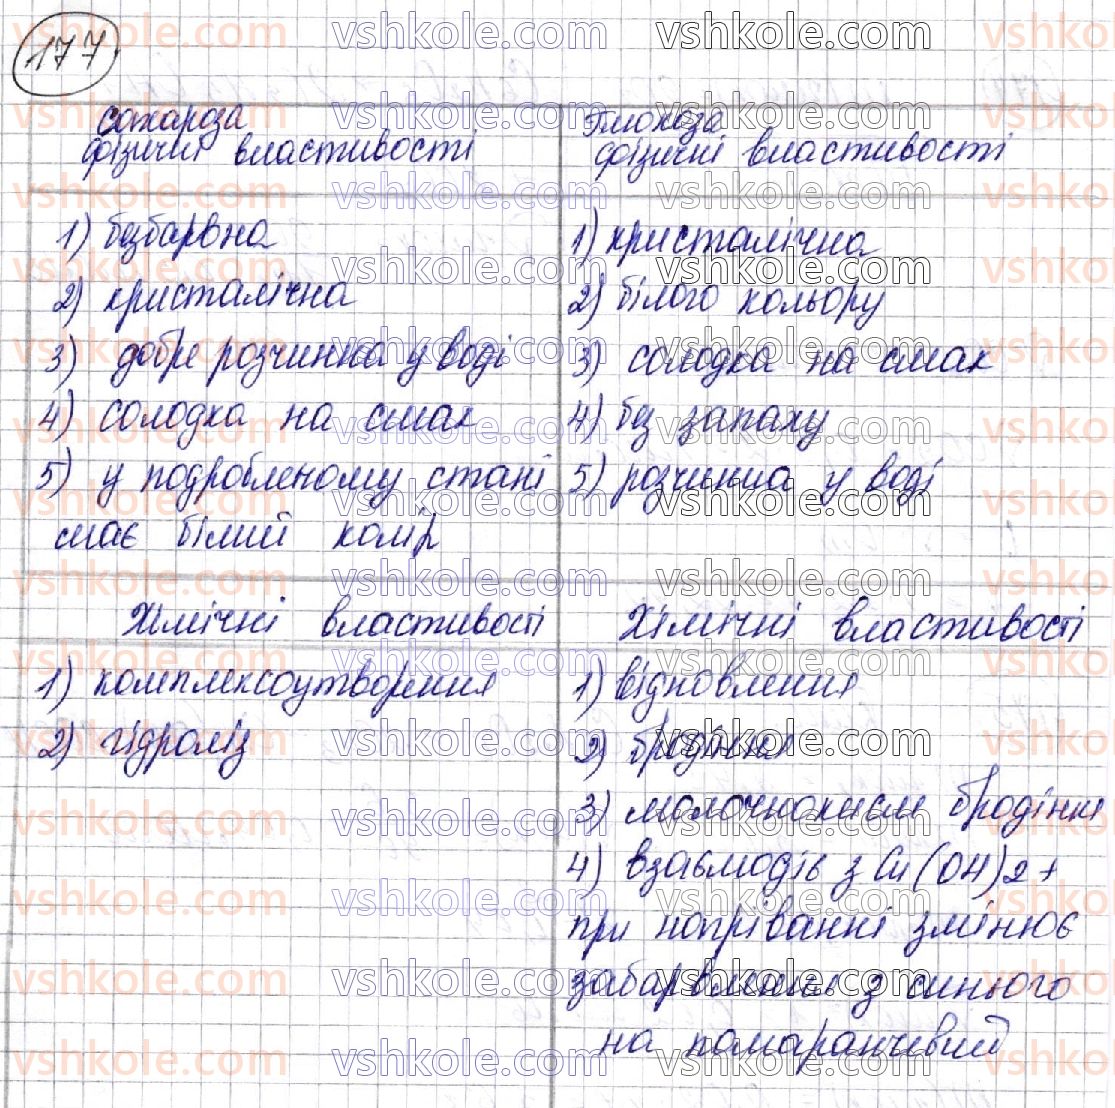 177
сахароза
фізичні властивості
1) безбарвна
2) кристалічна
3) добре розчинна у воді
4) солодка на смак
5) у подробленому стані
має білий колір
Хімічні властивості
1) комплексоутворення
2) гідроліз
Глюкоза
фізичні властивості
1) кристалічна
2) білого кольору
3) солодка на смак
4) без запаху
5) розчинна у воді
Хімічні властивості
1) відновлення
2) бродіння
3) молочнокисле бродіння
4) взаємодіє з Cu(OH)2 +
при нагріванні змінює
забарвлення з синього
на помаранчевий
vshkole.com